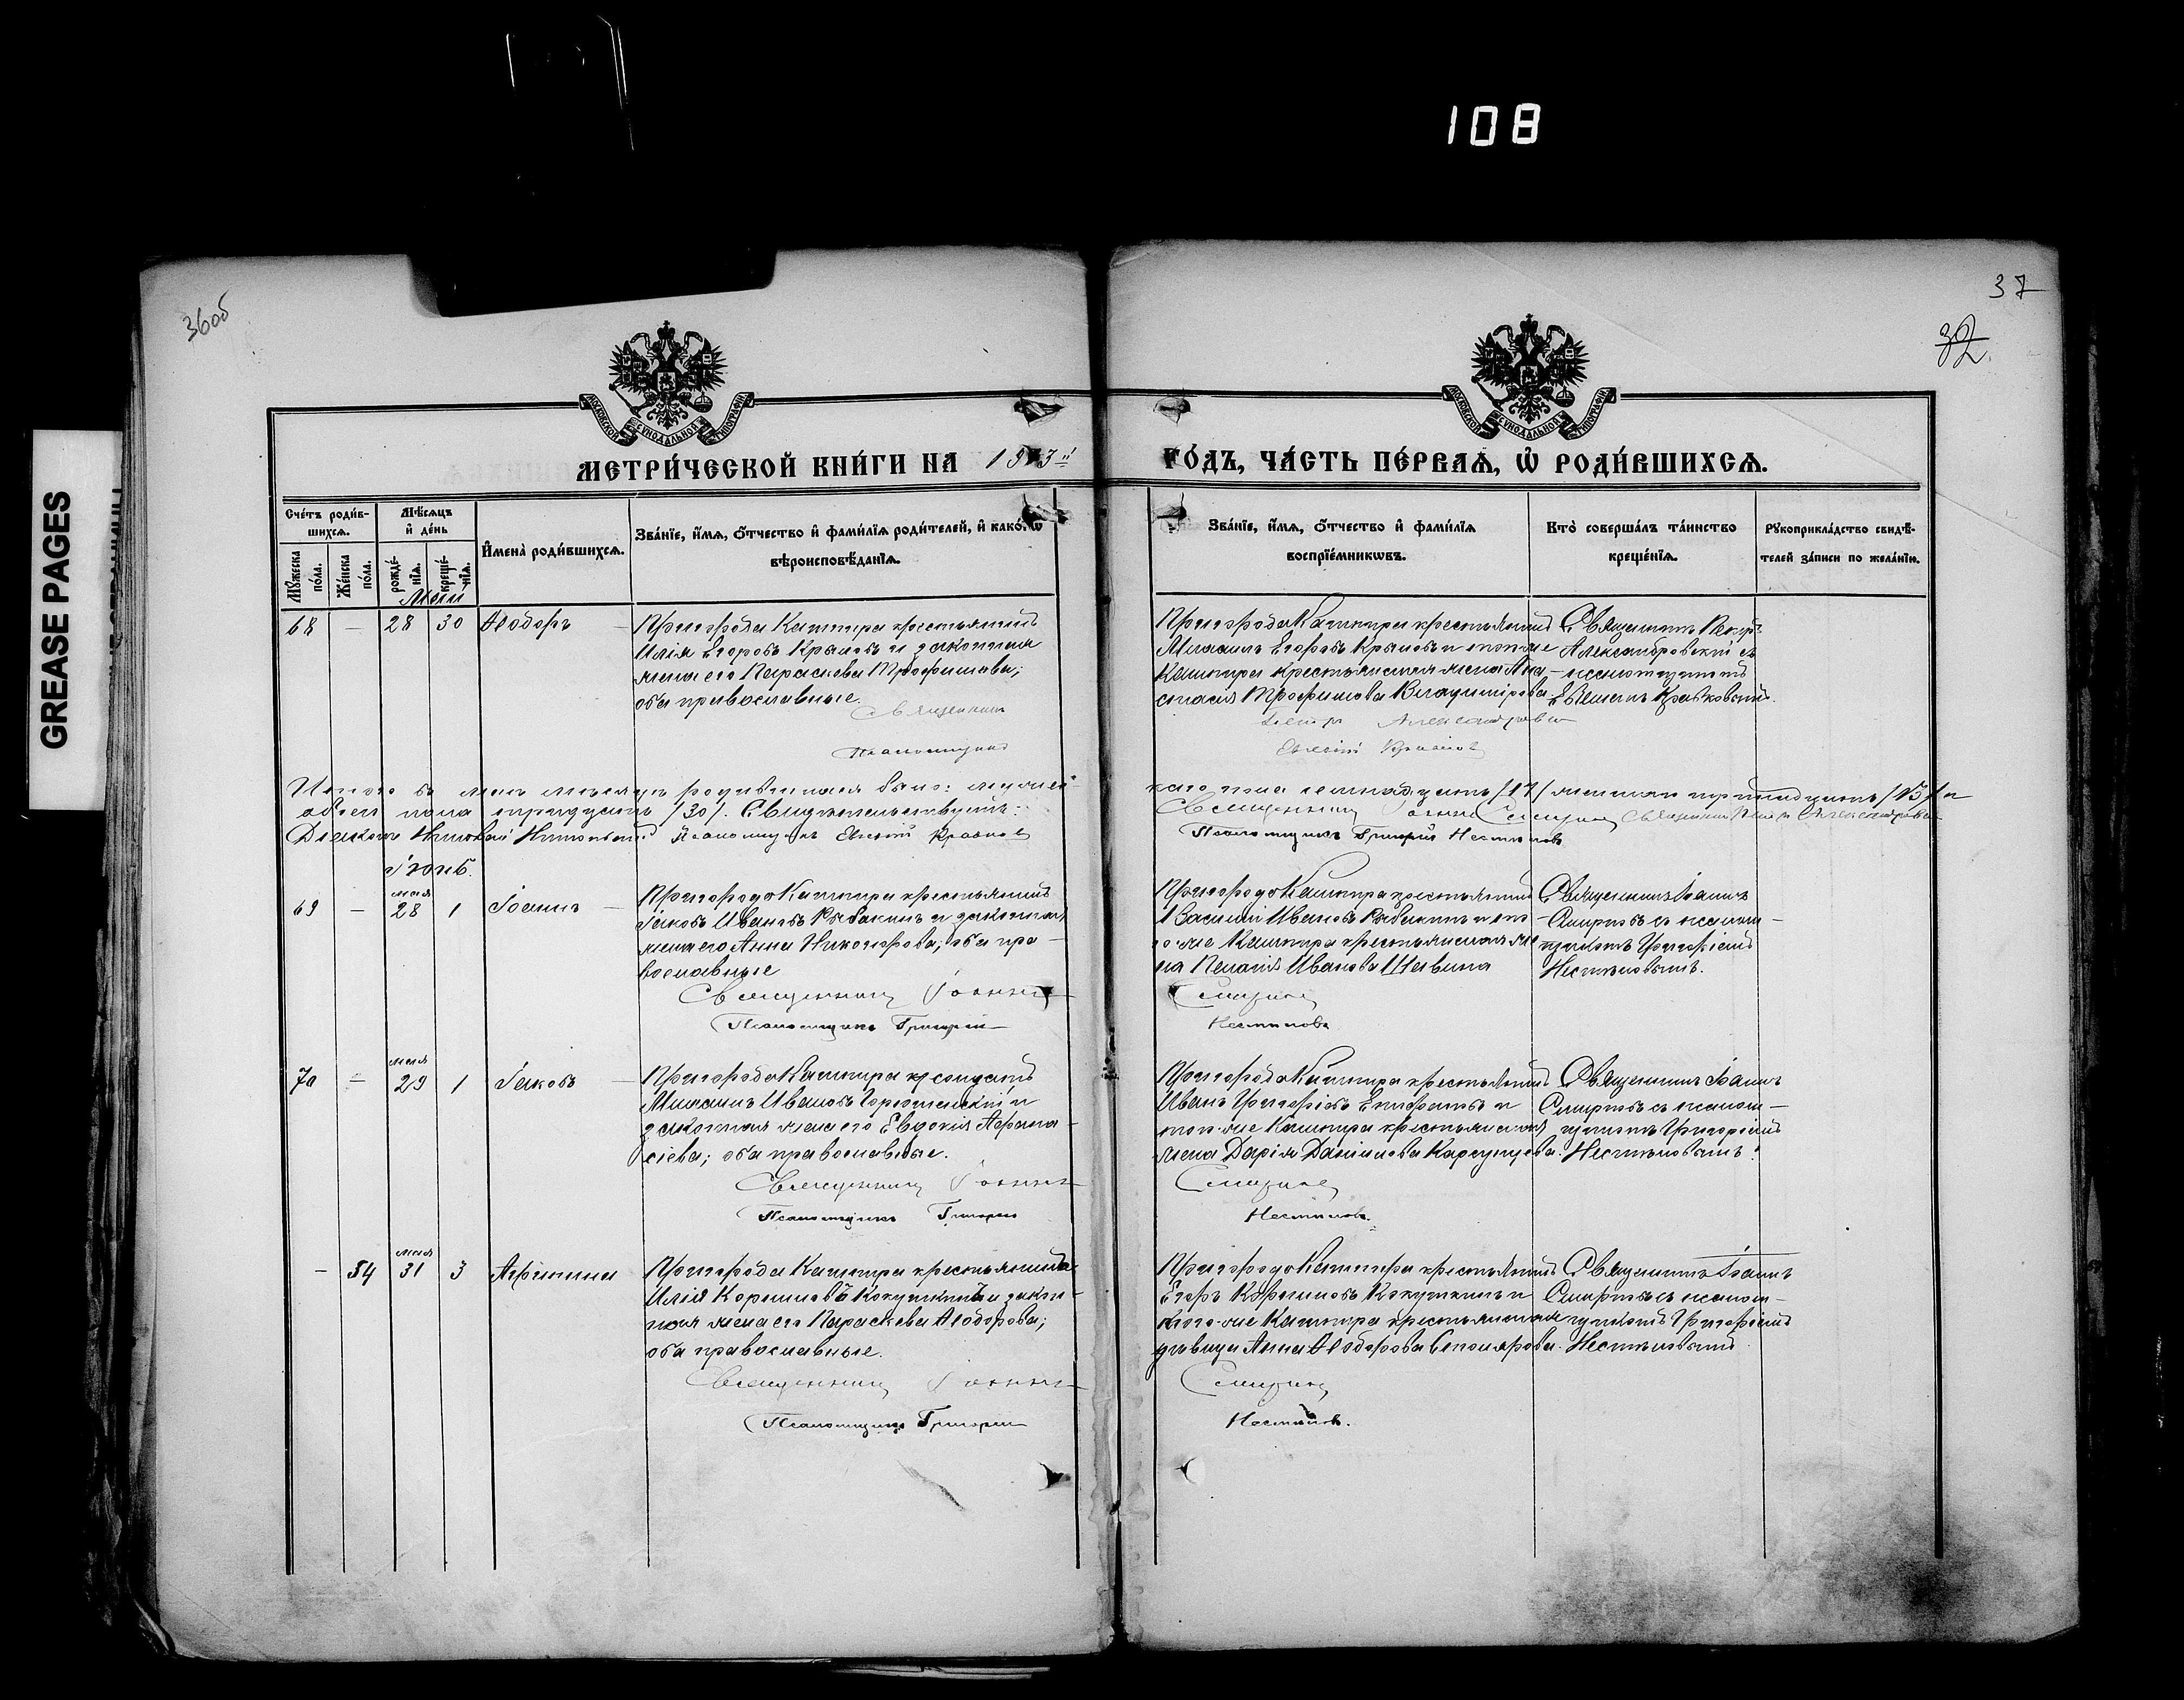 108
GREASE PAGES
36об
37
32
МОСКОВСКОЙ СѴНОДАЛЬНОЙ ТИПОГРАФІИ
МОСКОВСКОЙ СѴНОДАЛЬНОЙ ТИПОГРАФІИ
МЕТРИ́ЧЕСКОЙ КНИ́ГИ НА 1913й ГО́ДЪ, ЧА́СТЬ ПЕ́РВАѦ, Ѡ҆ РОДИ́ВШИХСѦ.
Сче́тъ роди́в-
шихсѧ.
Мꙋ́жеска по́ла.
Же́нска по́ла.
Мѣ́сѧцъ
и҆ де́нь
рожде́-
нїѧ.
креще́-
нїѧ.
И҆мена̀ роди́вшихсѧ.
Зва́нїе, и҆́мѧ, ѻ҆́тчество и҆ фами́лїѧ роди́телей, и҆ како́гѡ
вѣроисповѣ́данїѧ.
Зва́нїе, и҆́мѧ, ѻ҆́тчество и҆ фами́лїѧ
воспрїе́мникѡвъ.
Кто̀ соверша́лъ та́инство
креще́нїѧ.
Рꙋкоприкла́дство свидѣ́-
телей за́писи по жела́нїю.
Май
68 — 28 30 Ѳеодоръ
Пригорода Кашпира крестьянинъ
Илія Егоровъ Крыловъ и законная
жена его Параскева Трофимова;
оба православные.
Священникъ
Псаломщикъ
Пригорода Кашпира крестьянинъ
Михаилъ Егоровъ Крыловъ и того-же
Кашпира крестьянская жена Ана-
стасія Трофимова Владимірова
Петръ Александровскій
Евгеній Краснов
Священникъ Петръ
Александровскій съ
псаломщикомъ
Итого въ маѣ мѣсяцѣ родившихся было: мужес-
каго пола семнадцать /17/ женскаго тринадцать /13/ и
обоего пола тридцать /30/. Свидѣтельствуютъ:
Священникъ Іоаннъ Смирновъ Священникъ Петръ Александровскій
Діаконъ Николай Псаломщикъ Евгеній Краснов
Псаломщикъ Григорій Нестеловъ
Іюнь.
69 — мая 28 1 Іоаннъ
Пригорода Кашпира крестьянинъ
Іаковъ Ивановъ Рыбакинъ и законная
жена его Анна Никифорова; оба пра-
вославные
Священникъ Іоаннъ
Псаломщикъ Григорій
Пригорода Кашпира крестьянинъ
Василій Ивановъ Рыбакинъ и то-
го-же Кашпира крестьянская же-
на Пелагія Иванова
Смирнов
Нестеловъ
Священникъ Іоаннъ
Смирновъ съ псалом-
щикомъ Григоріемъ
Нестеловымъ.
70 — мая 29 1 Іаковъ
Пригорода Кашпира кр. солдатъ
Михаилъ Ивановъ и
законная жена его Евдокія Аѳана-
сіева; оба православные.
Священникъ Іоаннъ
Псаломщикъ Григорій
Пригорода Кашпира крестьянинъ
Иванъ Григоріевъ и
того-же Кашпира крестьянская
жена Дарія Даніилова Карпунцева.
Смирнов
Нестеловъ.
Священникъ Іоаннъ
Смирновъ съ псалом-
щикомъ Григоріемъ
Нестеловымъ.
— 54 мая 31 3 Агрипина
Пригорода Кашпира крестьянинъ
Илія Корниловъ Кокушкинъ и закон-
ная жена его Параскева Ѳеодорова;
оба православные.
Священникъ Іоаннъ
Псаломщикъ Григорій
Пригорода Кашпира крестьянинъ
Егоръ Корниловъ Кокушкинъ и
того-же Кашпира крестьянская
дѣвица Анна Ѳеодорова Столярова.
Смирнов
Нестеловъ.
Священникъ Іоаннъ
Смирновъ съ псалом-
щикомъ Григоріемъ
Нестеловымъ